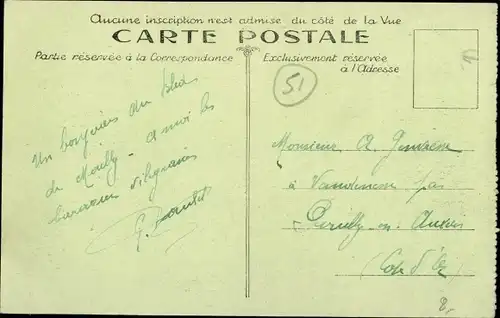 Aucune inscription n'est admise du côté de la Vue
CARTE POSTALE
Partie réservée à la Correspondance
Exclusivement réservée
à l'Adresse
51
Un du
de Mouilly - a moi les
baraques
G.
Monsieur A.
à Vandenesse par
Pouilly-en-Auxois
(Côte d'Or)
8,-